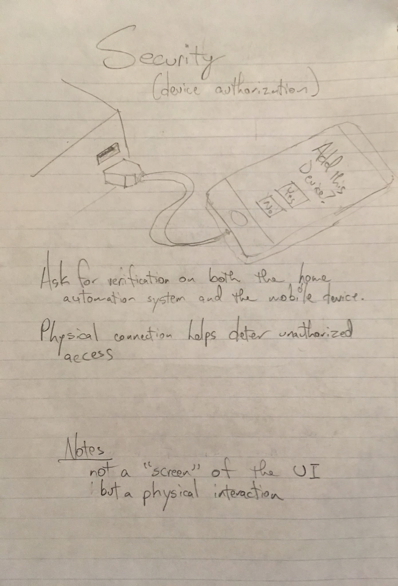 Security
(device authorization)
Add this
Device?
Yes
No
Ask for verification on both the home
automation system and the mobile device.
Physical connection helps deter unauthorized
access
Notes
not a "screen" of the UI
but a physical interaction